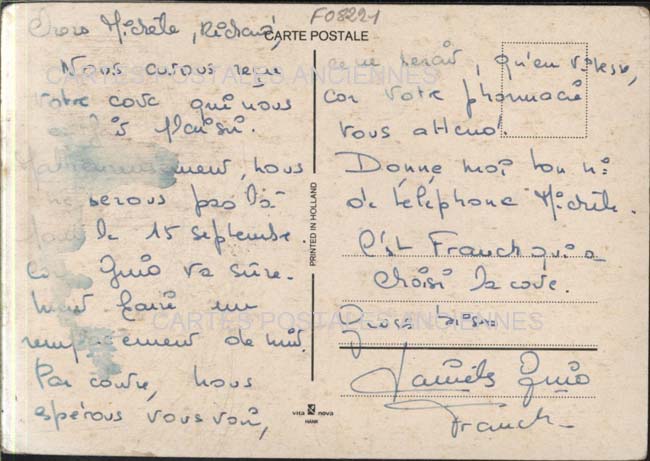 F08221
CARTE POSTALE
Chers Michèle, Richard,
Nous avons reçu
votre carte qui nous
a fait plaisir.
Malheureusement, nous
ne serons pas là
pour le 15 septembre
car Guio va sûre-
ment faire un
remplacement de nuit.
Par contre, nous
espérons vous voir,
ne serait, qu'en vitesse,
car votre pharmacie
vous attend.
Donne moi ton n°
de téléphone Michèle.
C'est Franck qui a
choisi la carte.
Gros bisous
Guio
Franck
PRINTED IN HOLLAND
vita nova
HANK
CARTES POSTALES ANCIENNES
CARTES POSTALES ANCIENNES